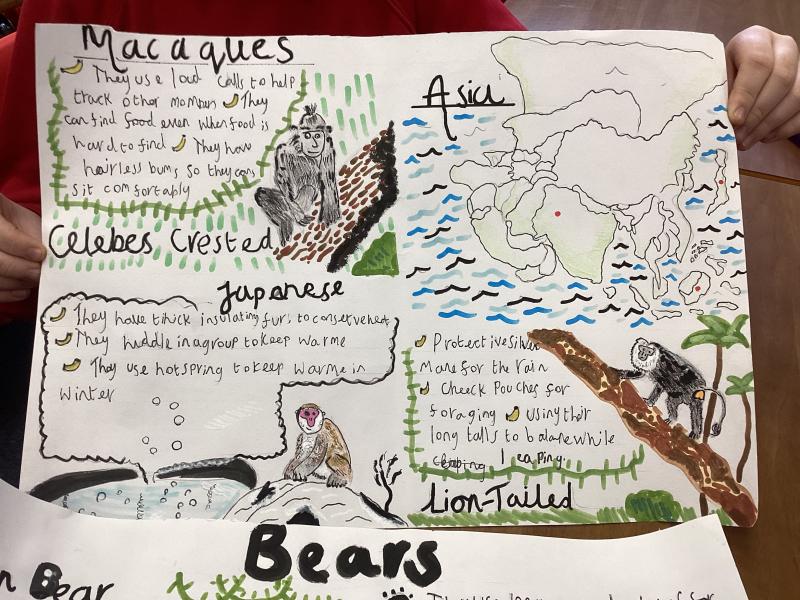 Macaques
They use loud calls to help
track other mombers They
can find food even when food is
hard to find They have
hairless bums so they can
sit comfortably
Celebes Crested
Asia
Japanese
They have thick insulating fur, to conserve heat
They huddle in a group to keep warme
They use hotspring to keep warme in
winter
Protective silver
Mane for the rain
Cheeck Pouches for
foraging using their
long tails to balane while
leaping
Lion-Tailed
Bears
n Bear